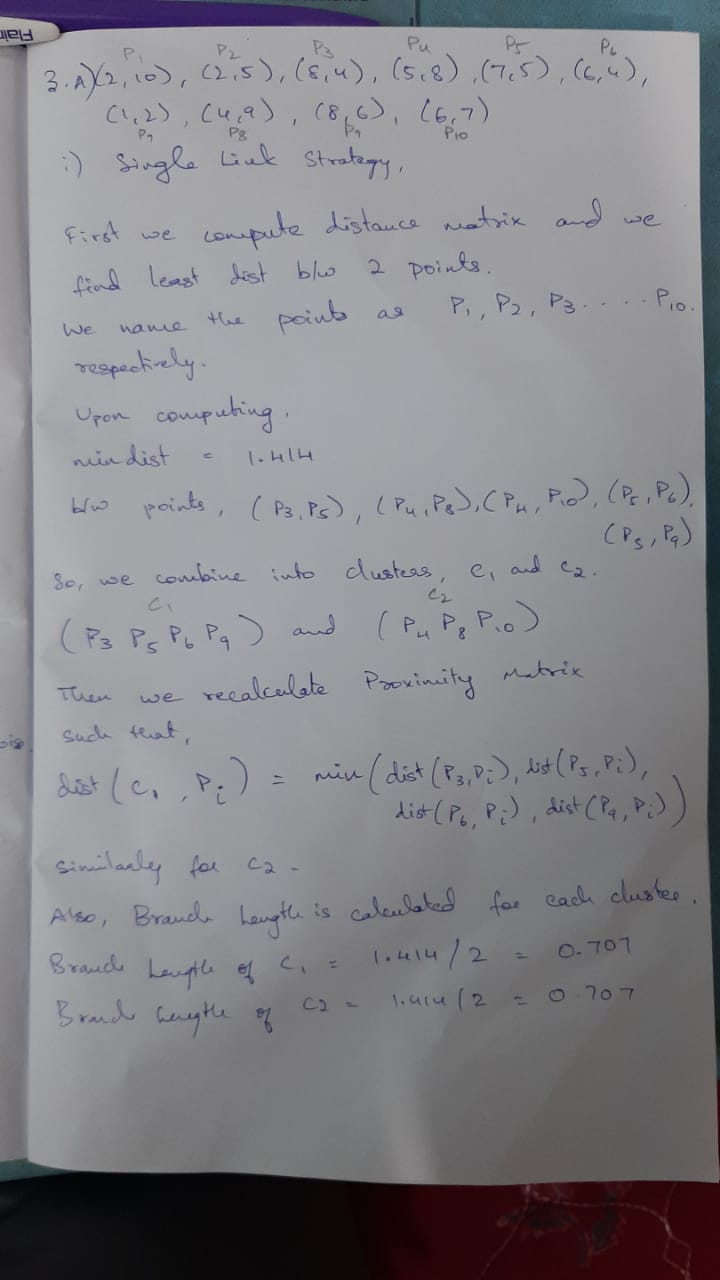 Flair
P1 P2 P3 P4 P5 P6
3.A) (2,10), (2,5), (8,4), (5,8), (7,5), (6,4),
(1,2), (4,9), (8,6), (6,7)
P7 P8 P9 P10
i) Single Link Strategy,
First we compute distance matrix and we
find least dist b/w 2 points.
We name the points as P1, P2, P3 ..... P10.
respectively.
Upon computing,
min dist = 1.414
b/w points, (P3, P5), (P4, P8), (P4, P10), (P5, P6),
(P5, P9)
So, we combine into clusters, C1 and C2.
C1 C2
(P3 P5 P6 P9) and (P4 P8 P10)
Then we recalculate Proximity Matrix
such that,
dist (C1, Pi) = min (dist (P3, Pi), dist (P5, Pi),
dist (P6, Pi), dist (P9, Pi))
Similarly for C2.
Also, Branch Length is calculated for each cluster.
Branch Length of C1 = 1.414/2 = 0.707
Branch Length of C2 = 1.414/2 = 0.707